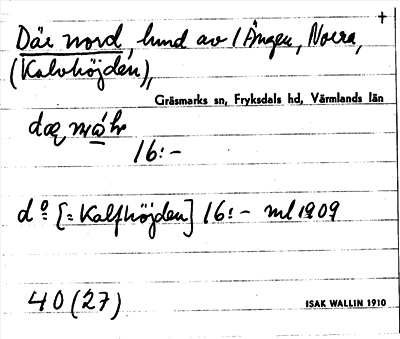 +
Där nord, hmd av 1 Ängen, Norra,
(Kalvhöjden),
Gräsmarks sn, Fryksdals hd, Värmlands län
16:-
do [= Kalfhöjden] 16:- ml 1909
40 (27)
ISAK WALLIN 1910